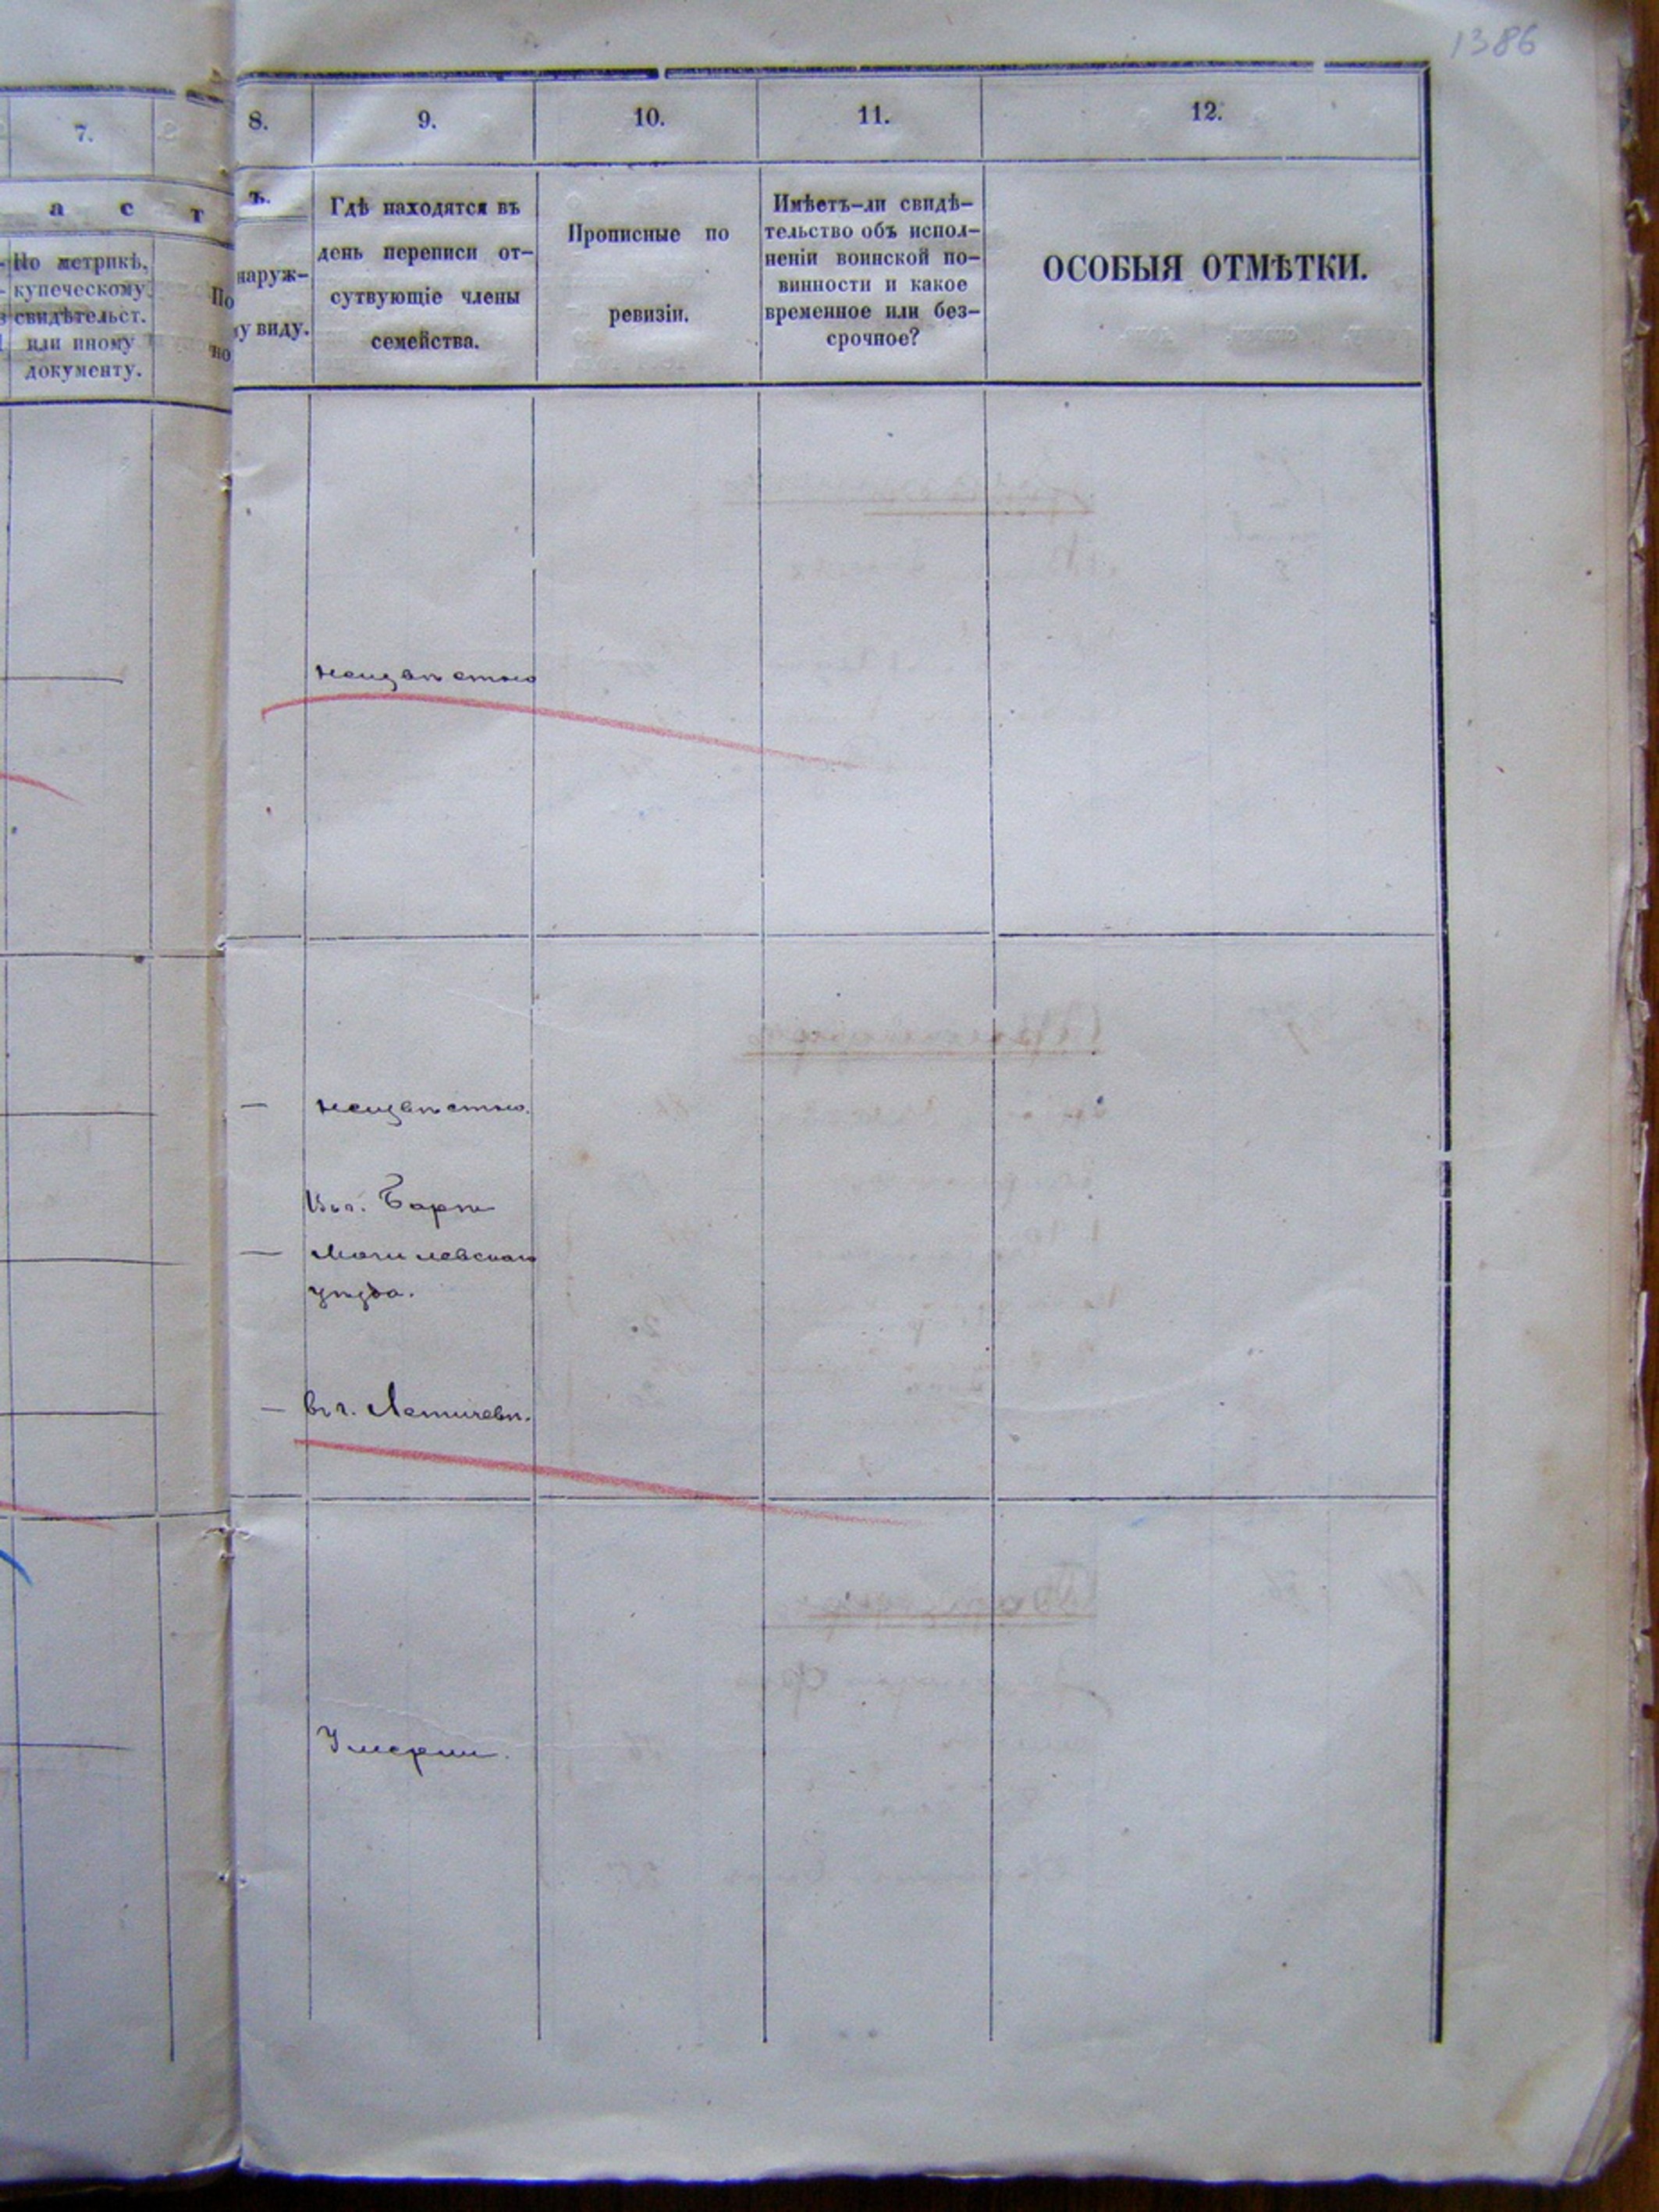 1386
7.
8.
9.
10.
11.
12.
а с т
ъ.
По метрикѣ,
купеческому
свидѣтельст.
или иному
документу.
По
но
наруж-
у виду.
Гдѣ находятся въ
день переписи от-
сутвующіе члены
семейства.
Прописные по
ревизіи.
Имѣетъ-ли свидѣ-
тельство объ испол-
неніи воинской по-
винности и какое
временное или без-
срочное?
ОСОБЫЯ ОТМѢТКИ.
неизвѣстно
— неизвѣстно.
Въ г. Барѣ
— Могилевскаго
уѣзда.
— въ г. Летичевѣ.
Умерли.